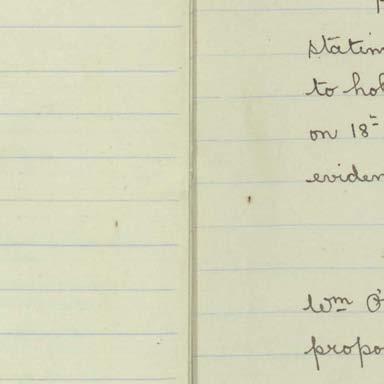 statin
to hol
on 18th
eviden
Wm O'
propo